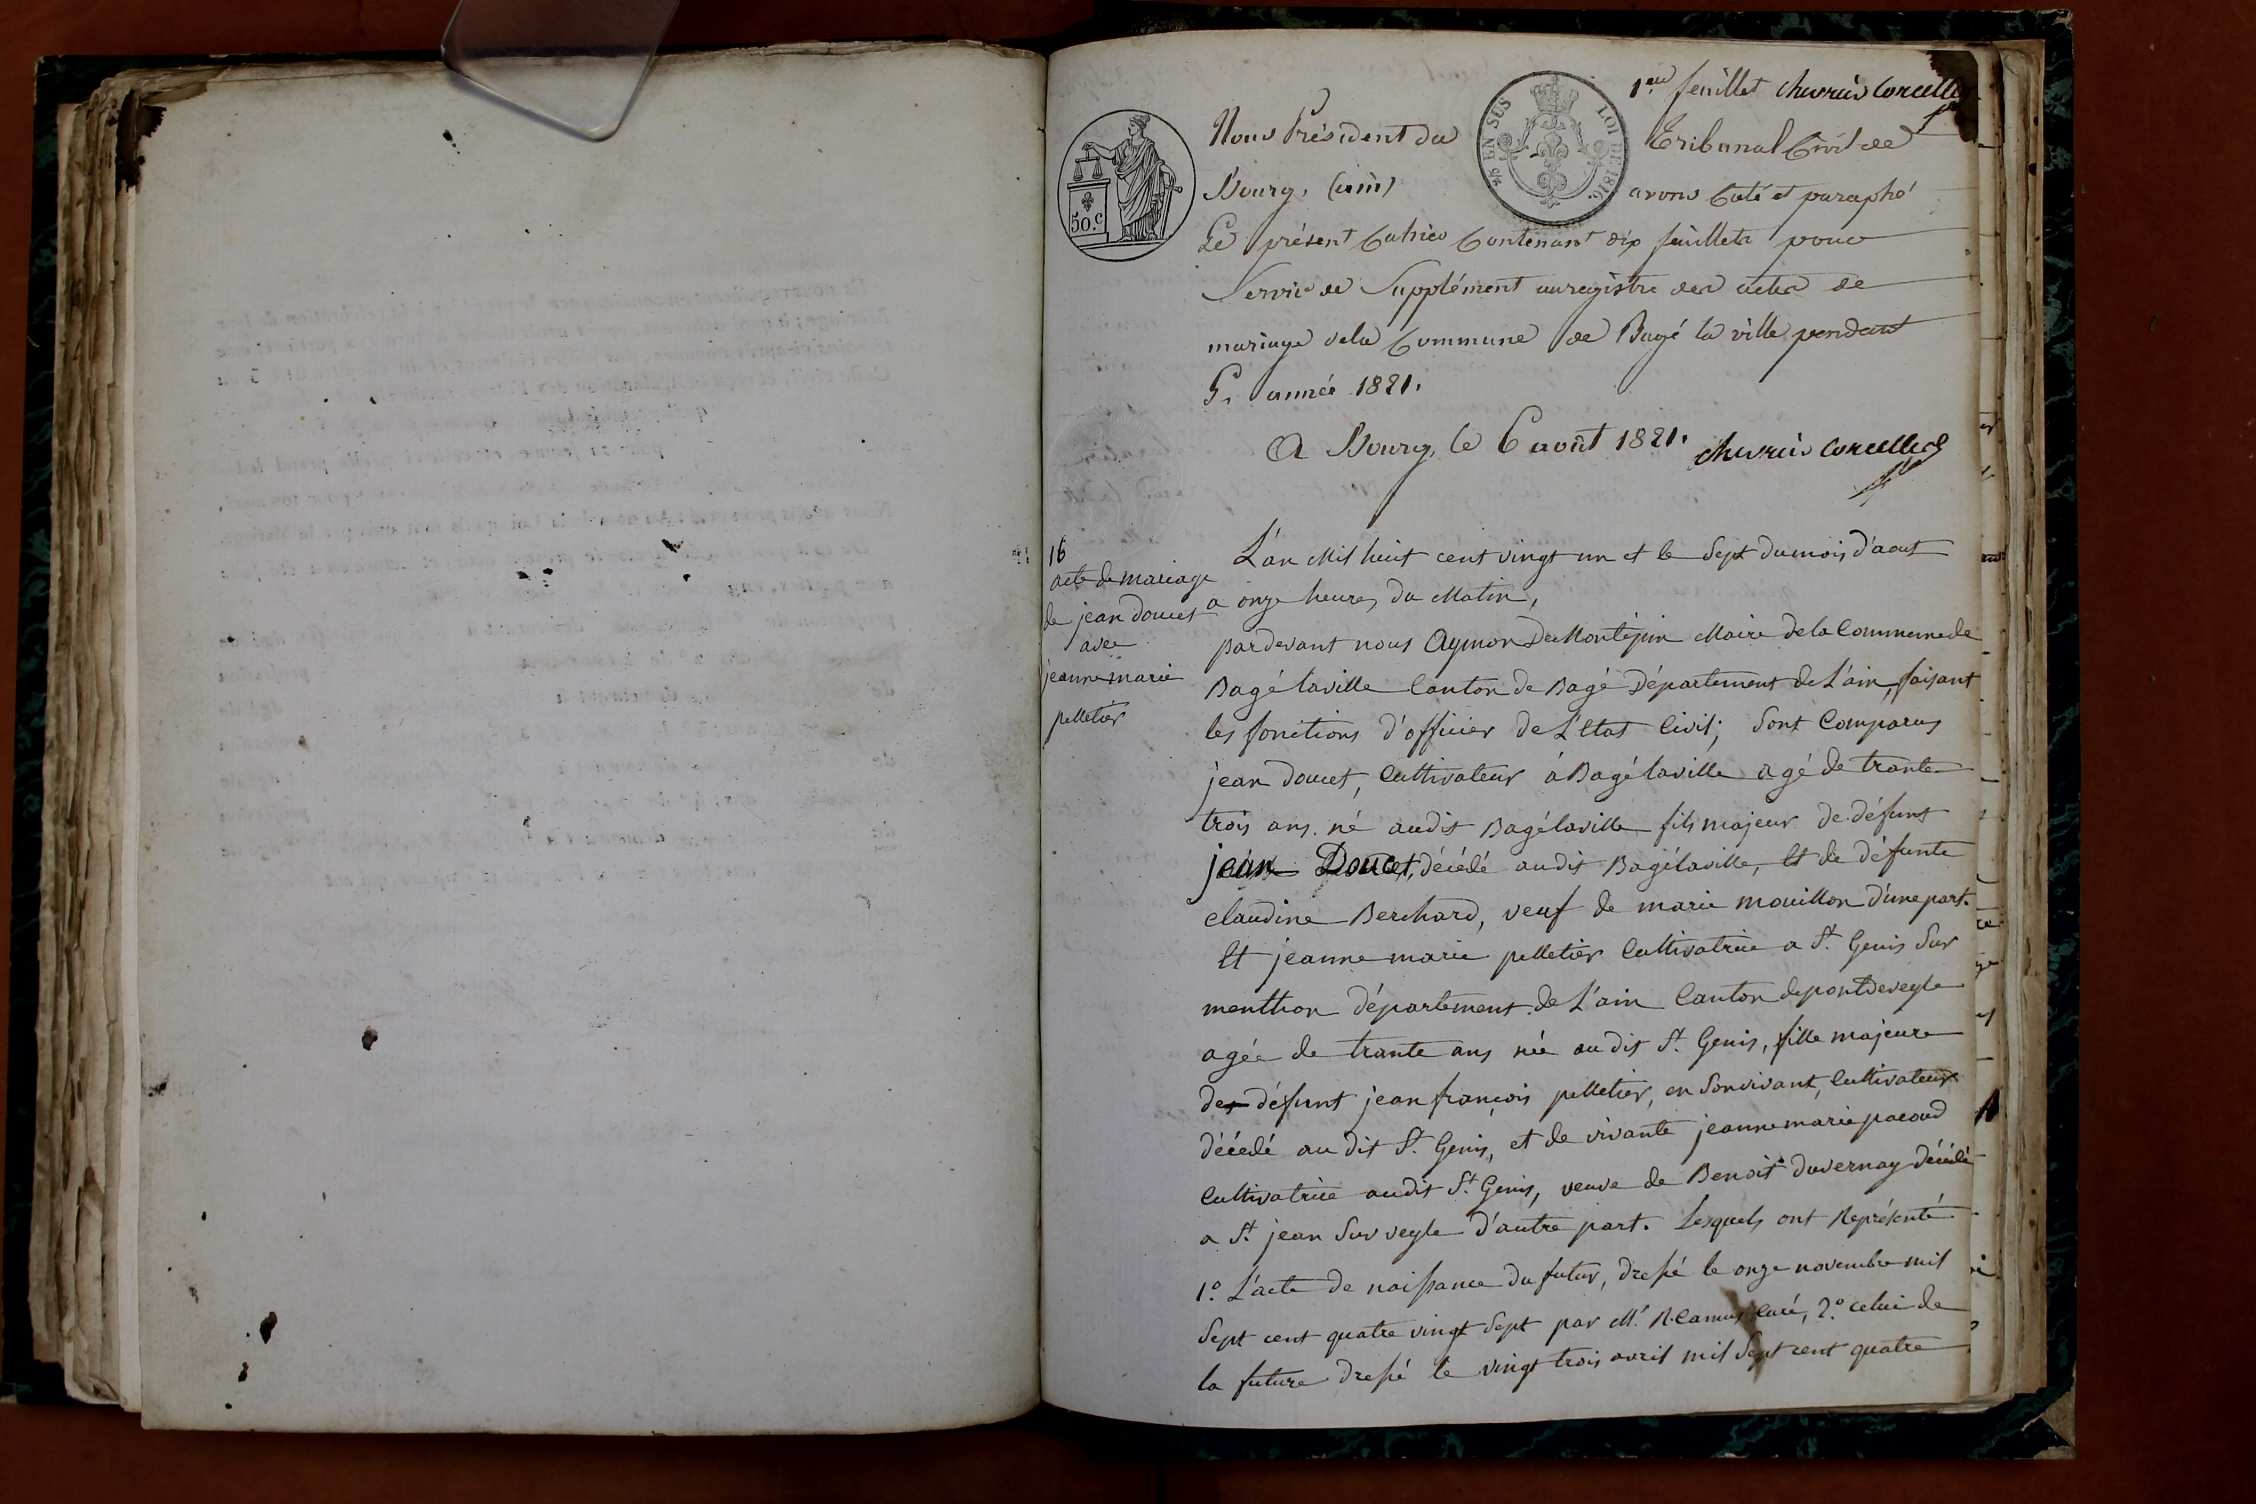 1er feuillet Chevrier Corcelles
50.c
EN SUS LOI DE 1816.
Nous Président du Tribunal Civil de
Bourg, (ain) avons Coté et paraphé
Le présent Cahier Contenant dix feuillets pour
Servir de Supplément au registre des actes de
mariage de la Commune de Bagé la ville pendant
L'année 1821.
A Bourg, le 6 août 1821. Chevrier Corcelles
16
acte de mariage
de jean doucet
avec
jeanne marie
pelletier
L'an Mil huit cent vingt un et le Sept du mois d'aout
a onze heures du Matin,
pardevant nous Aymon De Montépin Maire de la Commune de
Bagé laville Canton de Bagé Département de L'ain, faisant
les fonctions d'officier de L'Etat Civil; Sont Comparus
jean doucet, Cultivateur à Bagé laville agé de trante
trois ans né audit Bagé laville fils majeur de défunt
jean Doucet, décédé audit Bagé laville, Et de défunte
claudine Berchard, veuf de marie mouillon d'une part.
Et jeanne marie pelletier Cultivatrice a St. Genis Sur
menthon département de L'ain Canton de pontdeveyle
agée de trante ans née au dit St. Genis, fille majeure
de défunt jean françois pelletier, en Son vivant, Cultivateur
décédé au dit St. Genis, et de vivante jeanne marie pacoud
Cultivatrice audit St. Genis, veuve de Benoit duvernay décédé
a St. jean Sur veyle d'autre part. Lesquels ont Représenté
1.o L'acte de naissance du futur, dressé le onze novembre mil
Sept cent quatre vingt Sept par Mr. R. Camus Curé, 2.o celui de
la future dressé le vingt trois avril mil Sept cent quatre